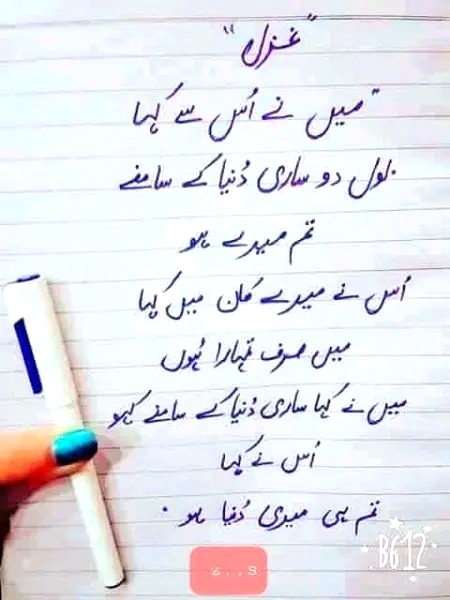 "غزل"
"میں نے اُس سے کہا
بول دو ساری دُنیا کے سامنے
تم میرے ہو
اُس نے میرے کان میں کہا
میں صرف تمہارا ہُوں
میں نے کہا ساری دُنیا کے سامنے کہو
اُس نے کہا
تم ہی میری دُنیا ہو ۔
B612
Z...S